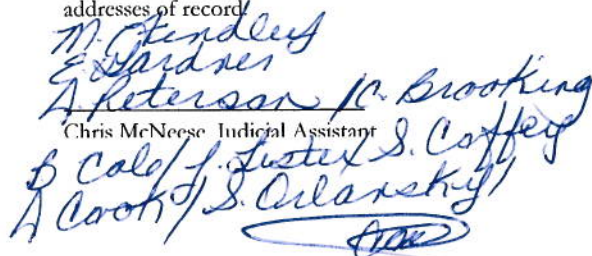 addresses of record.
M. Hendley
E. Gardner
A. Peterson /C. Brooking
Chris McNeese Judicial Assistant
B Cole/ J. Lister/ S. Caffery
A Cook/ S. Orlansky/